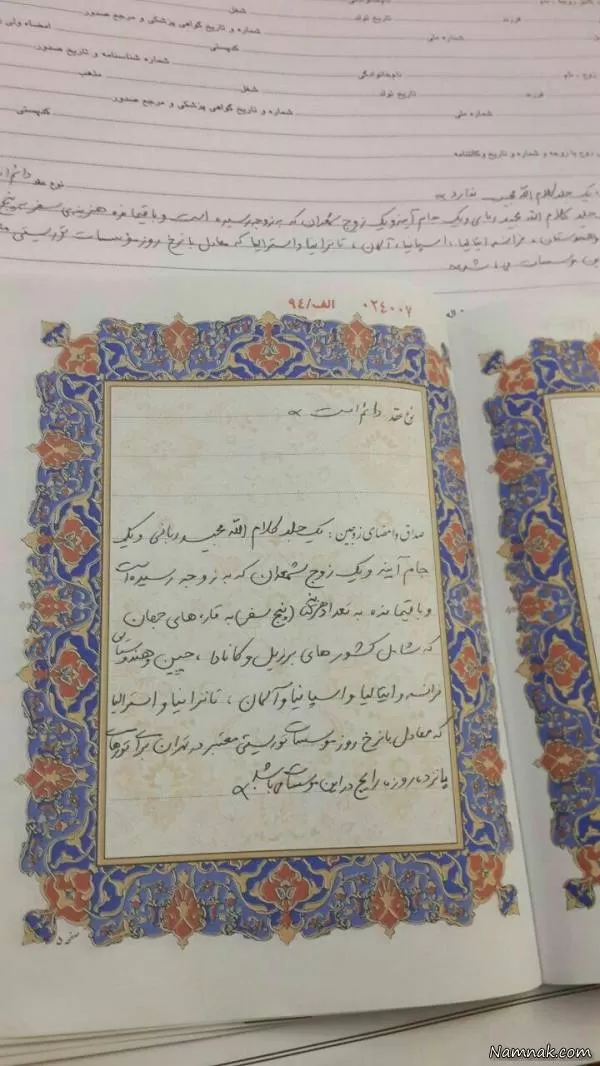 فرزند تاریخ تولد شغل
شماره ملی شماره و تاریخ گواهی پزشکی و مرجع صدور امضاء ولی
کدپستی
زوج - نام نام‌خانوادگی شماره شناسنامه و تاریخ صدور
فرزند تاریخ تولد شغل مذهب
شماره ملی شماره و تاریخ گواهی پزشکی و مرجع صدور کدپستی
زوج یا زوجه و شماره و تاریخ وکالتنامه
نوع عقد دائم
یک جلد کلام الله مجید ندارد
جلد کلام الله مجید ربانی و یک جام آینه و یک زوج شمعدان که به زوجه رسیده است و باقیمانده هزینه‌ی سفر به پنج
وهندوستان ، فرانسه ایتالیا، اسپانیا، آلمان ، تانزانیا و استرالیا که معادل با نرخ روز مؤسسات توریستی
این مؤسسات می باشد
۰۲۴۰۰۷ الف/۹۴
نوع عقد دائم است
صداق و امضای زوجین : یک جلد کلام الله مجید ربانی و یک
جام آینه و یک زوج شمعدان که به زوجه رسیده است
و باقیمانده به تعداد هزینه (پنج سفر) به قاره های جهان
که شامل کشورهای برزیل و کانادا ، چین و هندوستان
فرانسه و ایتالیا و اسپانیا و آلمان ، تانزانیا و استرالیا
که معادل با نرخ روز مؤسسات توریستی معتبر در تهران برای تورهای
پانزده روزه رایج در این مؤسسات می باشد
صفحه ۵
Namnak.com